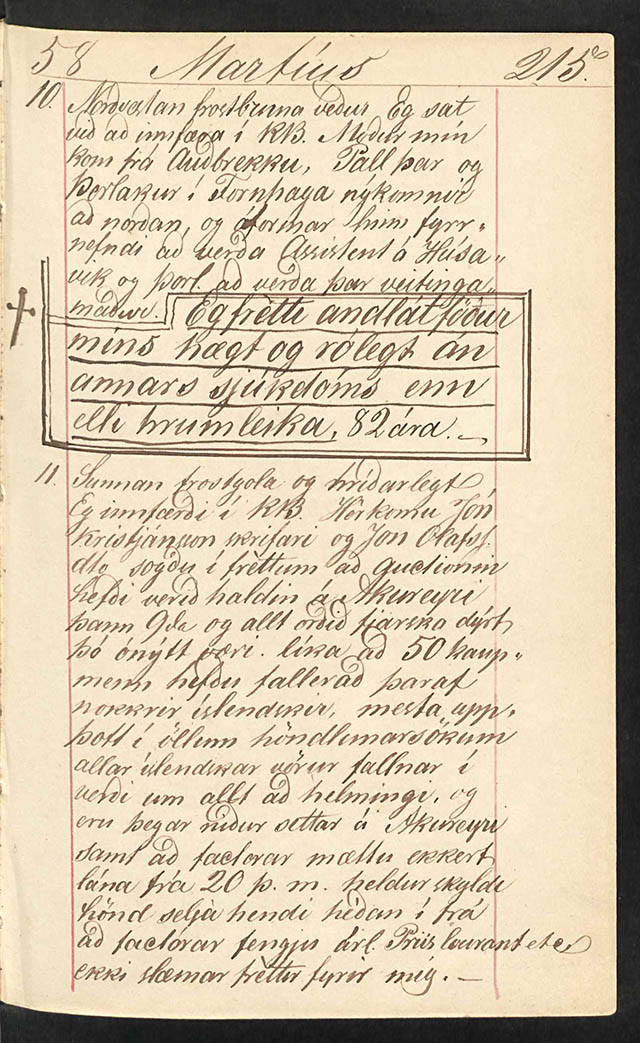 58 Martíus 215.
10. Nordvestan frostbruna vedur Eg sat
vid ad innfæra í KB. Modur mín
kom frá Audbrekku, Páll þar og
Þorlakur í Fornhaga nykomnir
ad nordan, og áformar hinn fyrr-
nefndi ad verda Assistent á Húsa-
vík og Þorl. ad verda þar veitinga-
madur. Eg frétti andlát födur
míns hægt og rólegt án
annars sjúkdóms enn
elli hrumleika, 82 ára. —
11. Sunnan frostgola og hrídarlegt
Eg innfærdi í KB. Hér komu Jón
Kristjánsson skrifari og Jón Olafss.
dto sogdu í fréttum ad auctionin
hefdi verid haldin á Akureyri
þann 9da og allt ordid fjarska dýrt
þó ónýtt væri. líka ad 50 kaup-
menn hefdu fallerad þaraf
nokkrir íslendskir, mesta upp-
þott í öllum höndlunarsökum
allar íslendskar vörur fallnar í
verdi um allt ad helmingi, og
eru þegar nidur settar á Akureyri
samt ad factorar mættu ekkert
lána frá 20 þ. m. heldur skyldi
hönd selja hendi hédan í frá
ad factorar fengju árl. Priis Courant etc
ekki slæmar fréttir fyrir mig. —